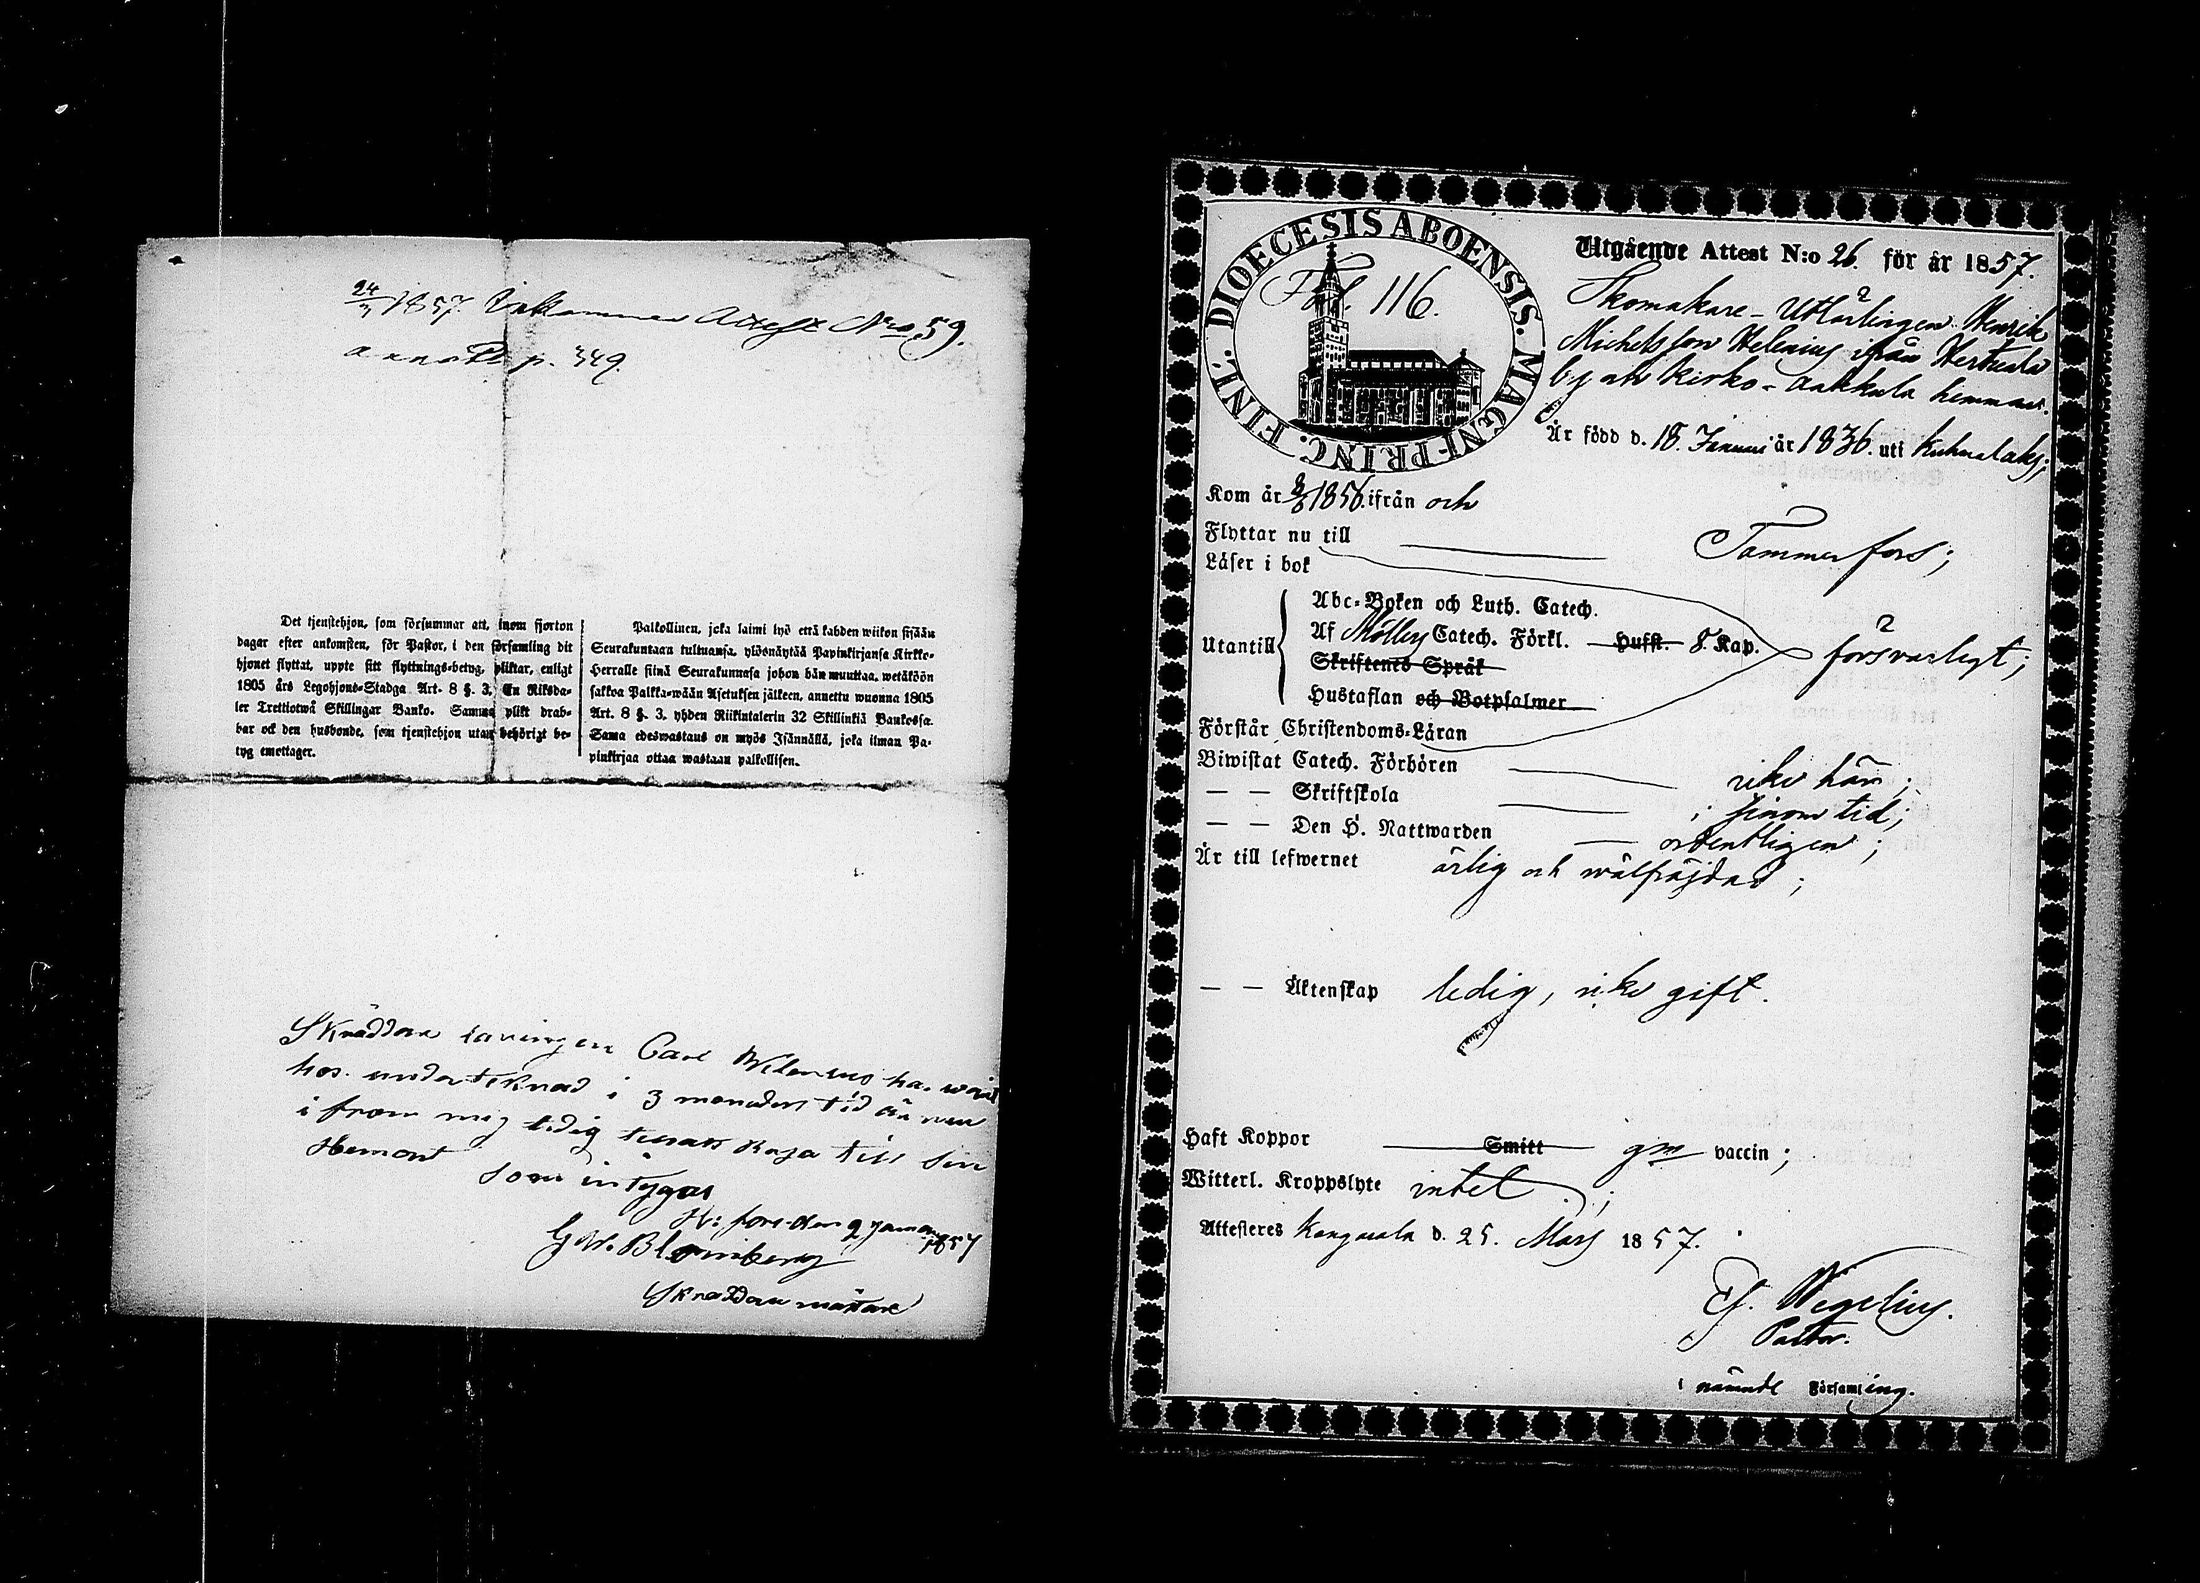 24/3 1857. Inkommen Attest Nro 59.
annott p. 349.
Det tjenstehjon, som försummar att, inom fjorton
dagar efter ankomsten, för Pastor, i den församling dit
hjonet flyttat, uppte sitt flyttnings-betyg, pliktar, enligt
1805 års Legohjons-Stadga Art. 8 §. 3. En Riksda-
ler Trettiotwå Skillingar Banko. Samma plikt drab-
bar ock den husbonde, som tjenstehjon utan behörigt be-
tyg emottager.
Palkollinen, joka laimi lyö että kahden wiikon sisään
Seurakuntaan tultuansa, ylösnäytää Papinkirjansa Kirkko-
Herralle siinä Seurakunnasa johon hän muuttaa, wetäköön
sakkoa Palkka-wään Asetuksen jälkeen, annettu wuonna 1805
Art. 8 §. 3. yhden Riikintalerin 32 Skillinkiä Bankossa.
Sama edeswastaus on myös Isännällä, joka ilman Pa-
pinkirjaa ottaa wastaan palkollisen.
Skräddare Carl Welenius har warit
hos underteknad i 3 manaders tid än nu
i från mig ledig till sin
Hemort
som intygas
H: fors den 9 Januari 1857
G W. Blomberg
Skräddare mästare
DIOECESIS ABOENSIS. MAGNI PRINC. FINL.
Fol. 116.
Utgående Attest N:o 26. för år 1857.
Skomakare-Utlärlingen Henrik
Michelsson Helenius ifrån Hertuala
by och Kirko-Aakkula hemman.
Är född d. 18. Januari år 1836. uti Kuhmalaks;
Kom år 8/8 1856. ifrån och
Flyttar nu till Tammerfors;
Läser i bok
Utantill
Abc-Boken och Luth. Catech.
Af Möllers Catech. Förkl. Hufst. 8. Kap. försvarligt;
Skriftenes Språk
Hustaflan och Botpsalmer
Förstår Christendoms-Läran
Biwistat Catech. Förhören icke här;
— — Skriftskola i sinom tid;
— — Den H. Nattwarden ordentligen;
Är till lefwernet ärlig och wälfräjdad;
— — Äktenskap ledig, icke gift.
Haft Koppor Smitt gm vaccin;
Witterl. Kroppslyte intet;
Attesteres Kangasala d. 25. Mars 1857.
Wegelius.
Pastor.
i nämnde Församling.